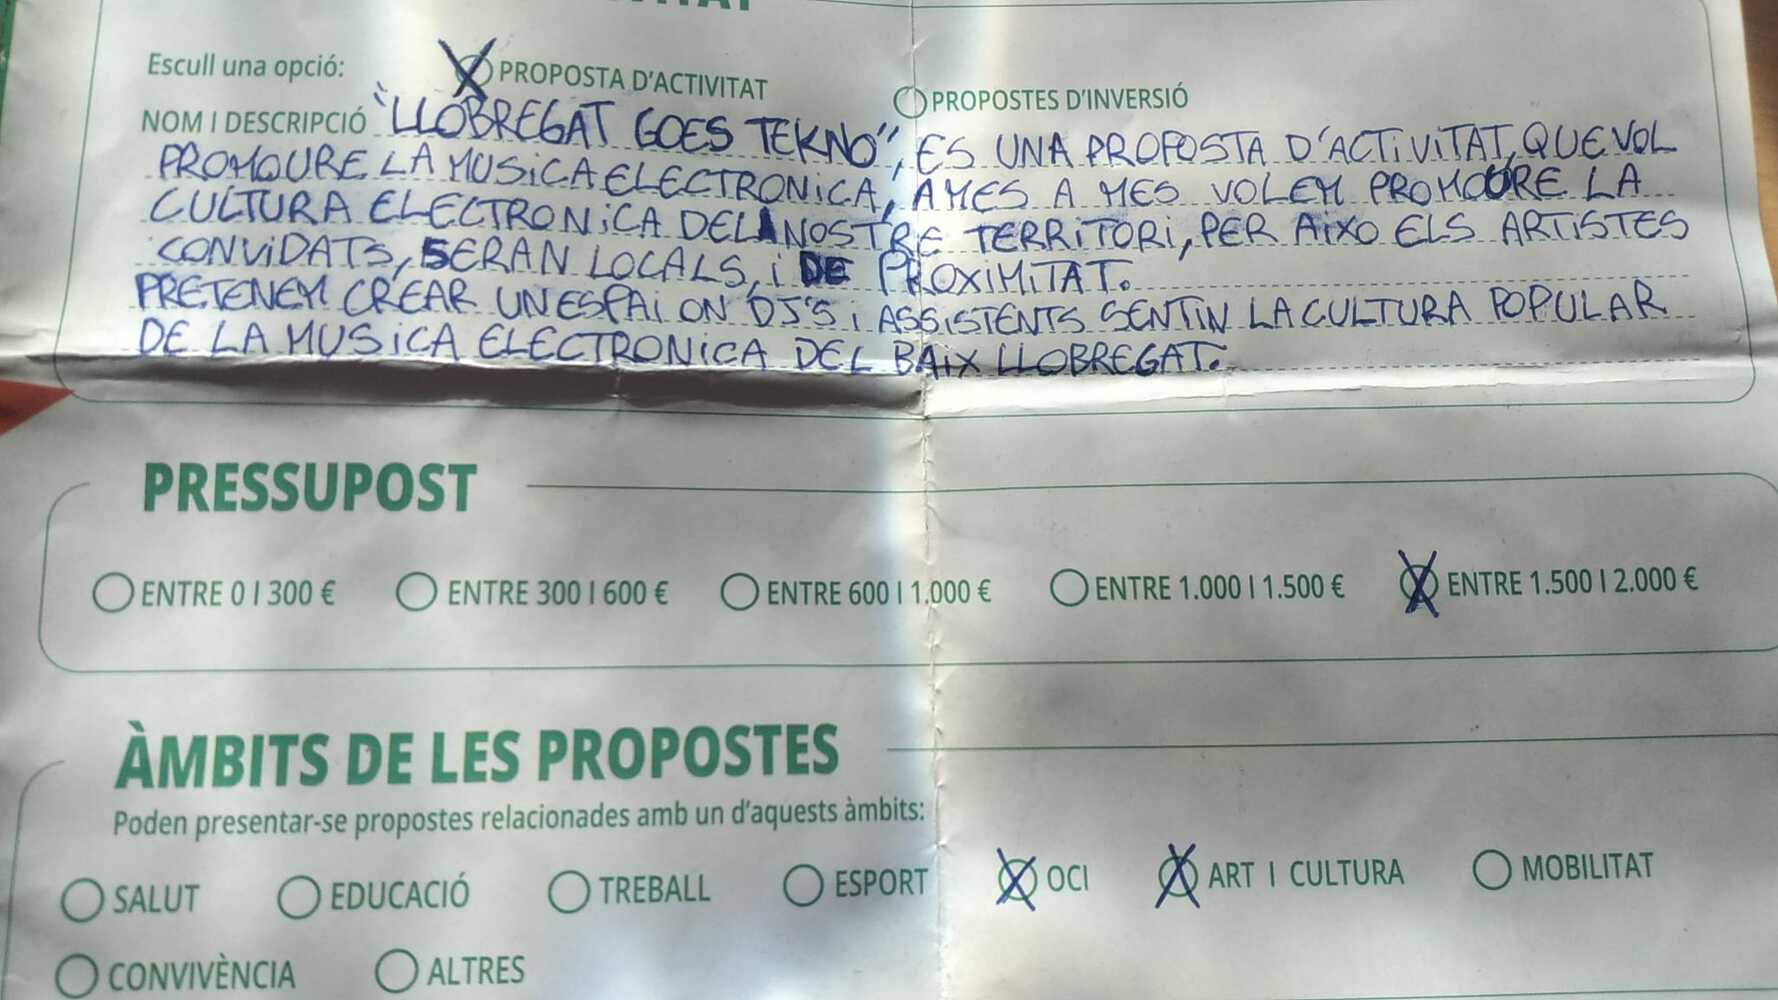 Escull una opció:
PROPOSTA D'ACTIVITAT
PROPOSTES D'INVERSIÓ
NOM I DESCRIPCIÓ "LLOBREGAT GOES TEKNO", ES UNA PROPOSTA D'ACTIVITAT, QUE VOL
PROMOURE LA MUSICA ELECTRONICA, A MES A MES VOLEM PROMOURE LA
CULTURA ELECTRONICA DEL NOSTRE TERRITORI, PER AIXO ELS ARTISTES
CONVIDATS, SERAN LOCALS, I DE PROXIMITAT.
PRETENEM CREAR UN ESPAI ON DJ'S I ASSISTENTS SENTIN LA CULTURA POPULAR
DE LA MUSICA ELECTRONICA DEL BAIX LLOBREGAT.
PRESSUPOST
ENTRE 0 I 300 € ENTRE 300 I 600 € ENTRE 600 I 1.000 € ENTRE 1.000 I 1.500 € ENTRE 1.500 I 2.000 €
ÀMBITS DE LES PROPOSTES
Poden presentar-se propostes relacionades amb un d'aquests àmbits:
SALUT EDUCACIÓ TREBALL ESPORT OCI ART I CULTURA MOBILITAT
CONVIVÈNCIA ALTRES